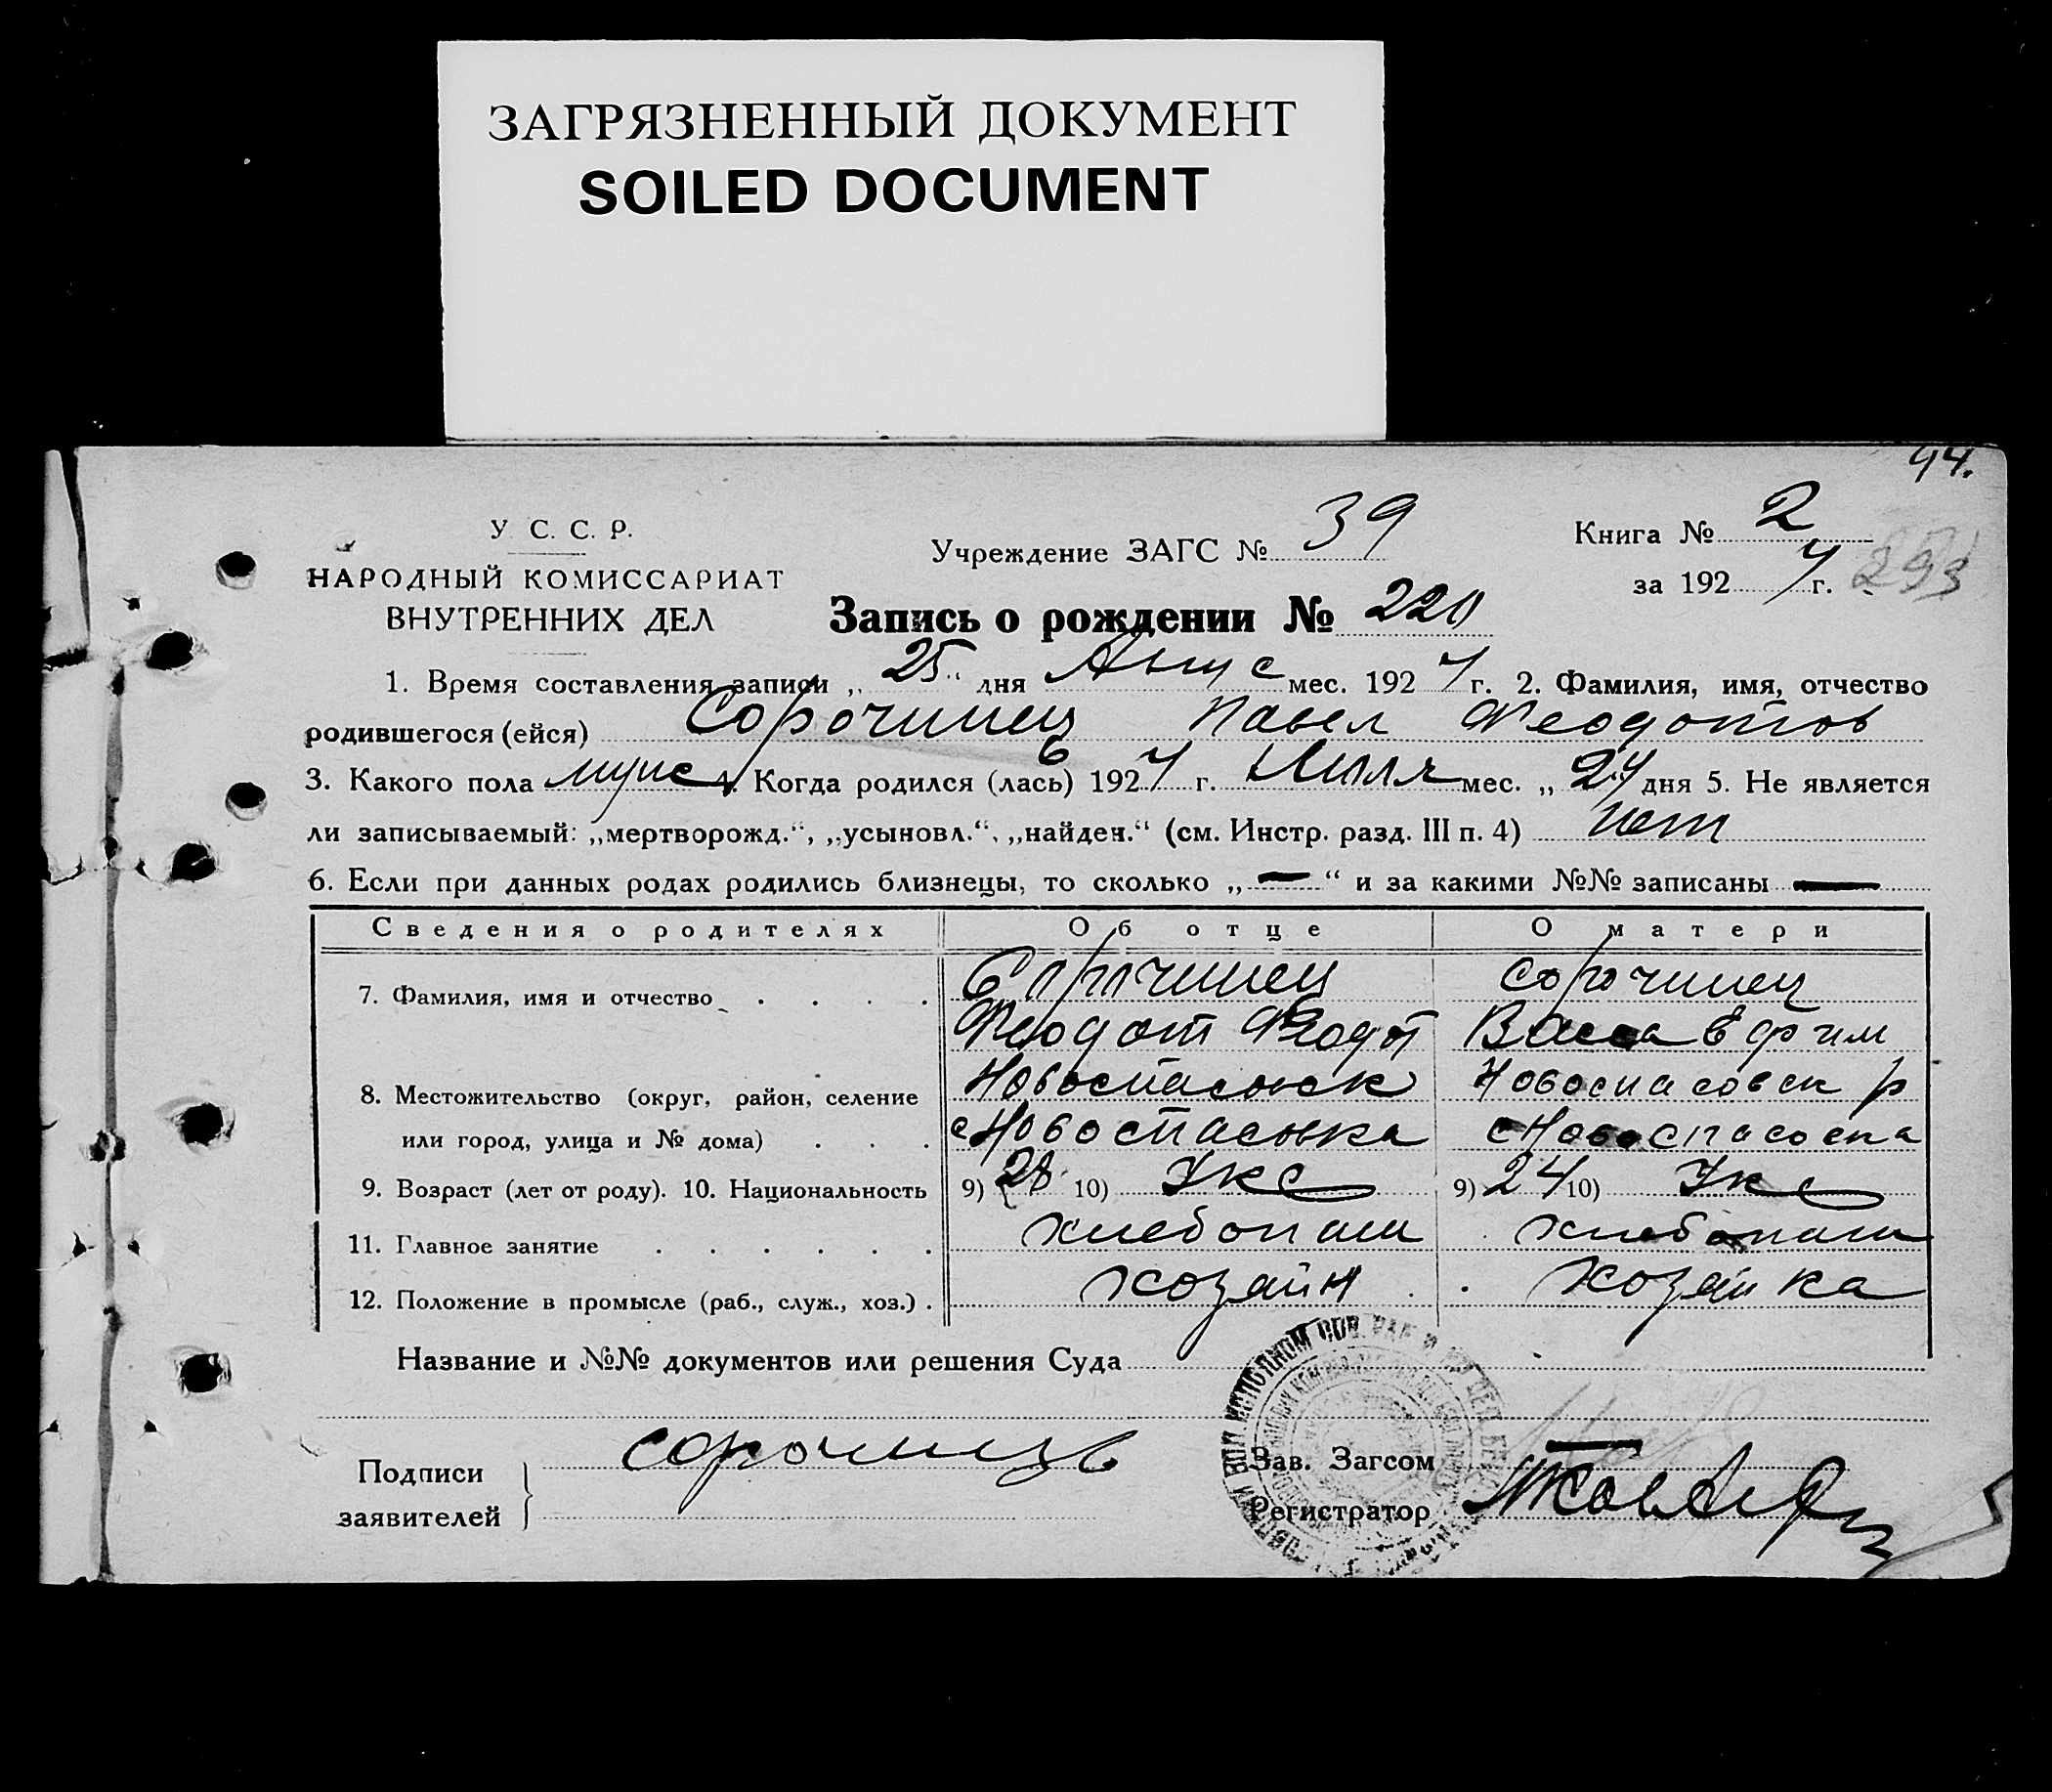 ЗАГРЯЗНЕННЫЙ ДОКУМЕНТ
SOILED DOCUMENT
94.
У. С. С. Р.
НАРОДНЫЙ КОМИССАРИАТ
ВНУТРЕННИХ ДЕЛ
Учреждение ЗАГС № 39
Книга № 2
за 1924 г. 293
Запись о рождении № 220
1. Время составления записи „25“ дня Авгус мес. 1924 г. 2. Фамилия, имя, отчество
родившегося (ейся) Сорочинец Павел Феодотов
3. Какого пола мужс 4. Когда родился (лась) 1924 г. Июля мес. „24 дня 5. Не является
ли записываемый: „мертворожд.“, „усыновл.“, „найден.“ (см. Инстр. разд. III п. 4) нет
6. Если при данных родах родились близнецы, то сколько „—“ и за какими №№ записаны —
Сведения о родителях Об отце О матери
7. Фамилия, имя и отчество . . . . Сорочинец Сорочинец
Феодот Феодот Васса Ефим
8. Местожительство (округ, район, селение Новоспасовск Новоспасовск р
или город, улица и № дома) . . . с Новоспасовка с Новоспасовка
9. Возраст (лет от роду). 10. Национальность 9) 28 10) Укс 9) 24 10) Укс
11. Главное занятие . . . . . . хлебопаш хлебопаш
12. Положение в промысле (раб., служ., хоз.) . хозаин хозайка
Название и №№ документов или решения Суда
Подписи
заявителей
Сорочинець
Зав. Загсом
Регистратор